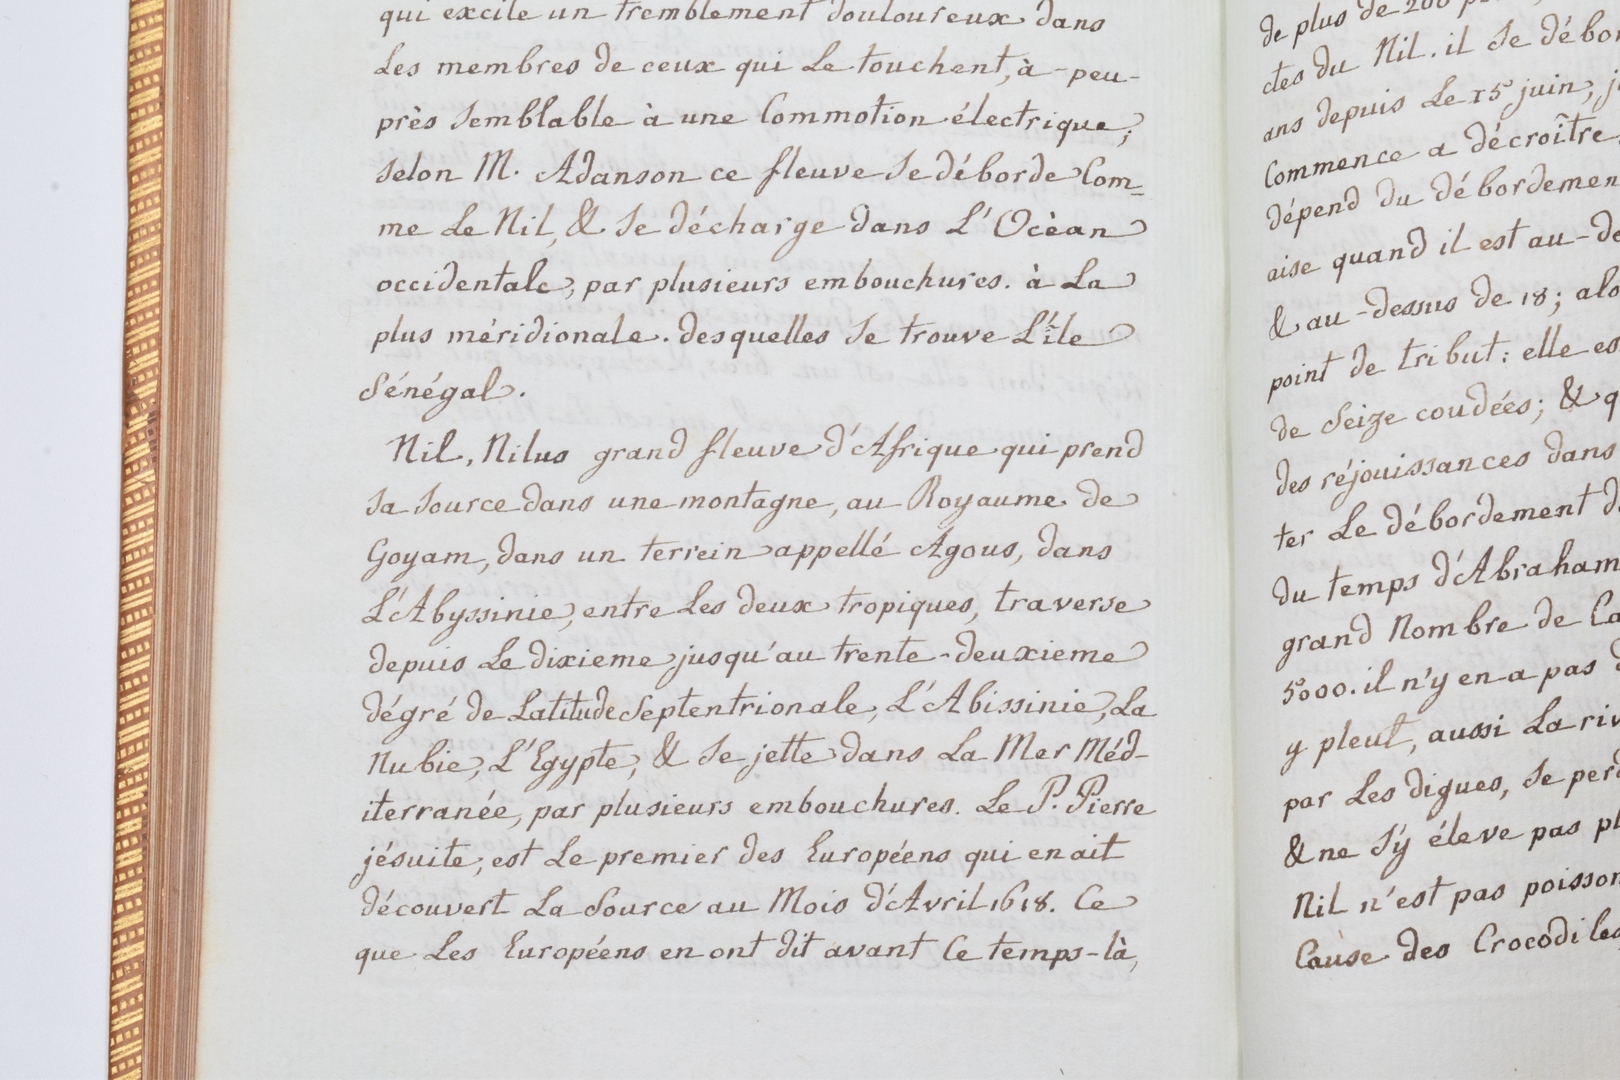 qui excite un tremblement douloureux dans
Les membres de ceux qui Le touchent, à-peu-
près semblable à une Commotion électrique;
selon M. Adanson ce fleuve se déborde Com=
me Le Nil, & se décharge dans L'Ocèan
occidentale, par plusieurs embouchures. à La
plus méridionale. desquelles se trouve L'île
Sénégal.
Nil, Nilus grand fleuve d'Afrique qui prend
sa source dans une montagne, au Royaume de
Goyam, dans un terrein appellé Agous, dans
L'Abyssinie, entre Les deux tropiques, traverse
depuis Le dixieme jusqu'au trente-deuxieme
dégré de Latitude Septentrionale, L'Abissinie, La
Nubie, L'Egypte, & se jette dans La Mer Méd-
iterranée, par plusieurs embouchures. Le P. Pierre
jésuite, est Le premier des Européens qui en ait
découvert La Source au Mois d'Avril 1618. Ce
que Les Européens en ont dit avant Ce temps-là,
de plus de 200
ctes du Nil. il se débor
ans depuis Le 15 juin, j
Commence a décroître
dépend du débordemen
aise quand il est au-de
& au-dessus de 18; alo
point de tribut: elle es
de Seize coudées; & q
des réjouissances dans
ter Le débordement d
du temps d'Abraham
grand Nombre de Ca
5000. il n'y en a pas d
y pleut, aussi La riv
par Les digues, se perd
& ne s'y éleve pas pl
Nil n'est pas poisson
Cause des Crocodiles